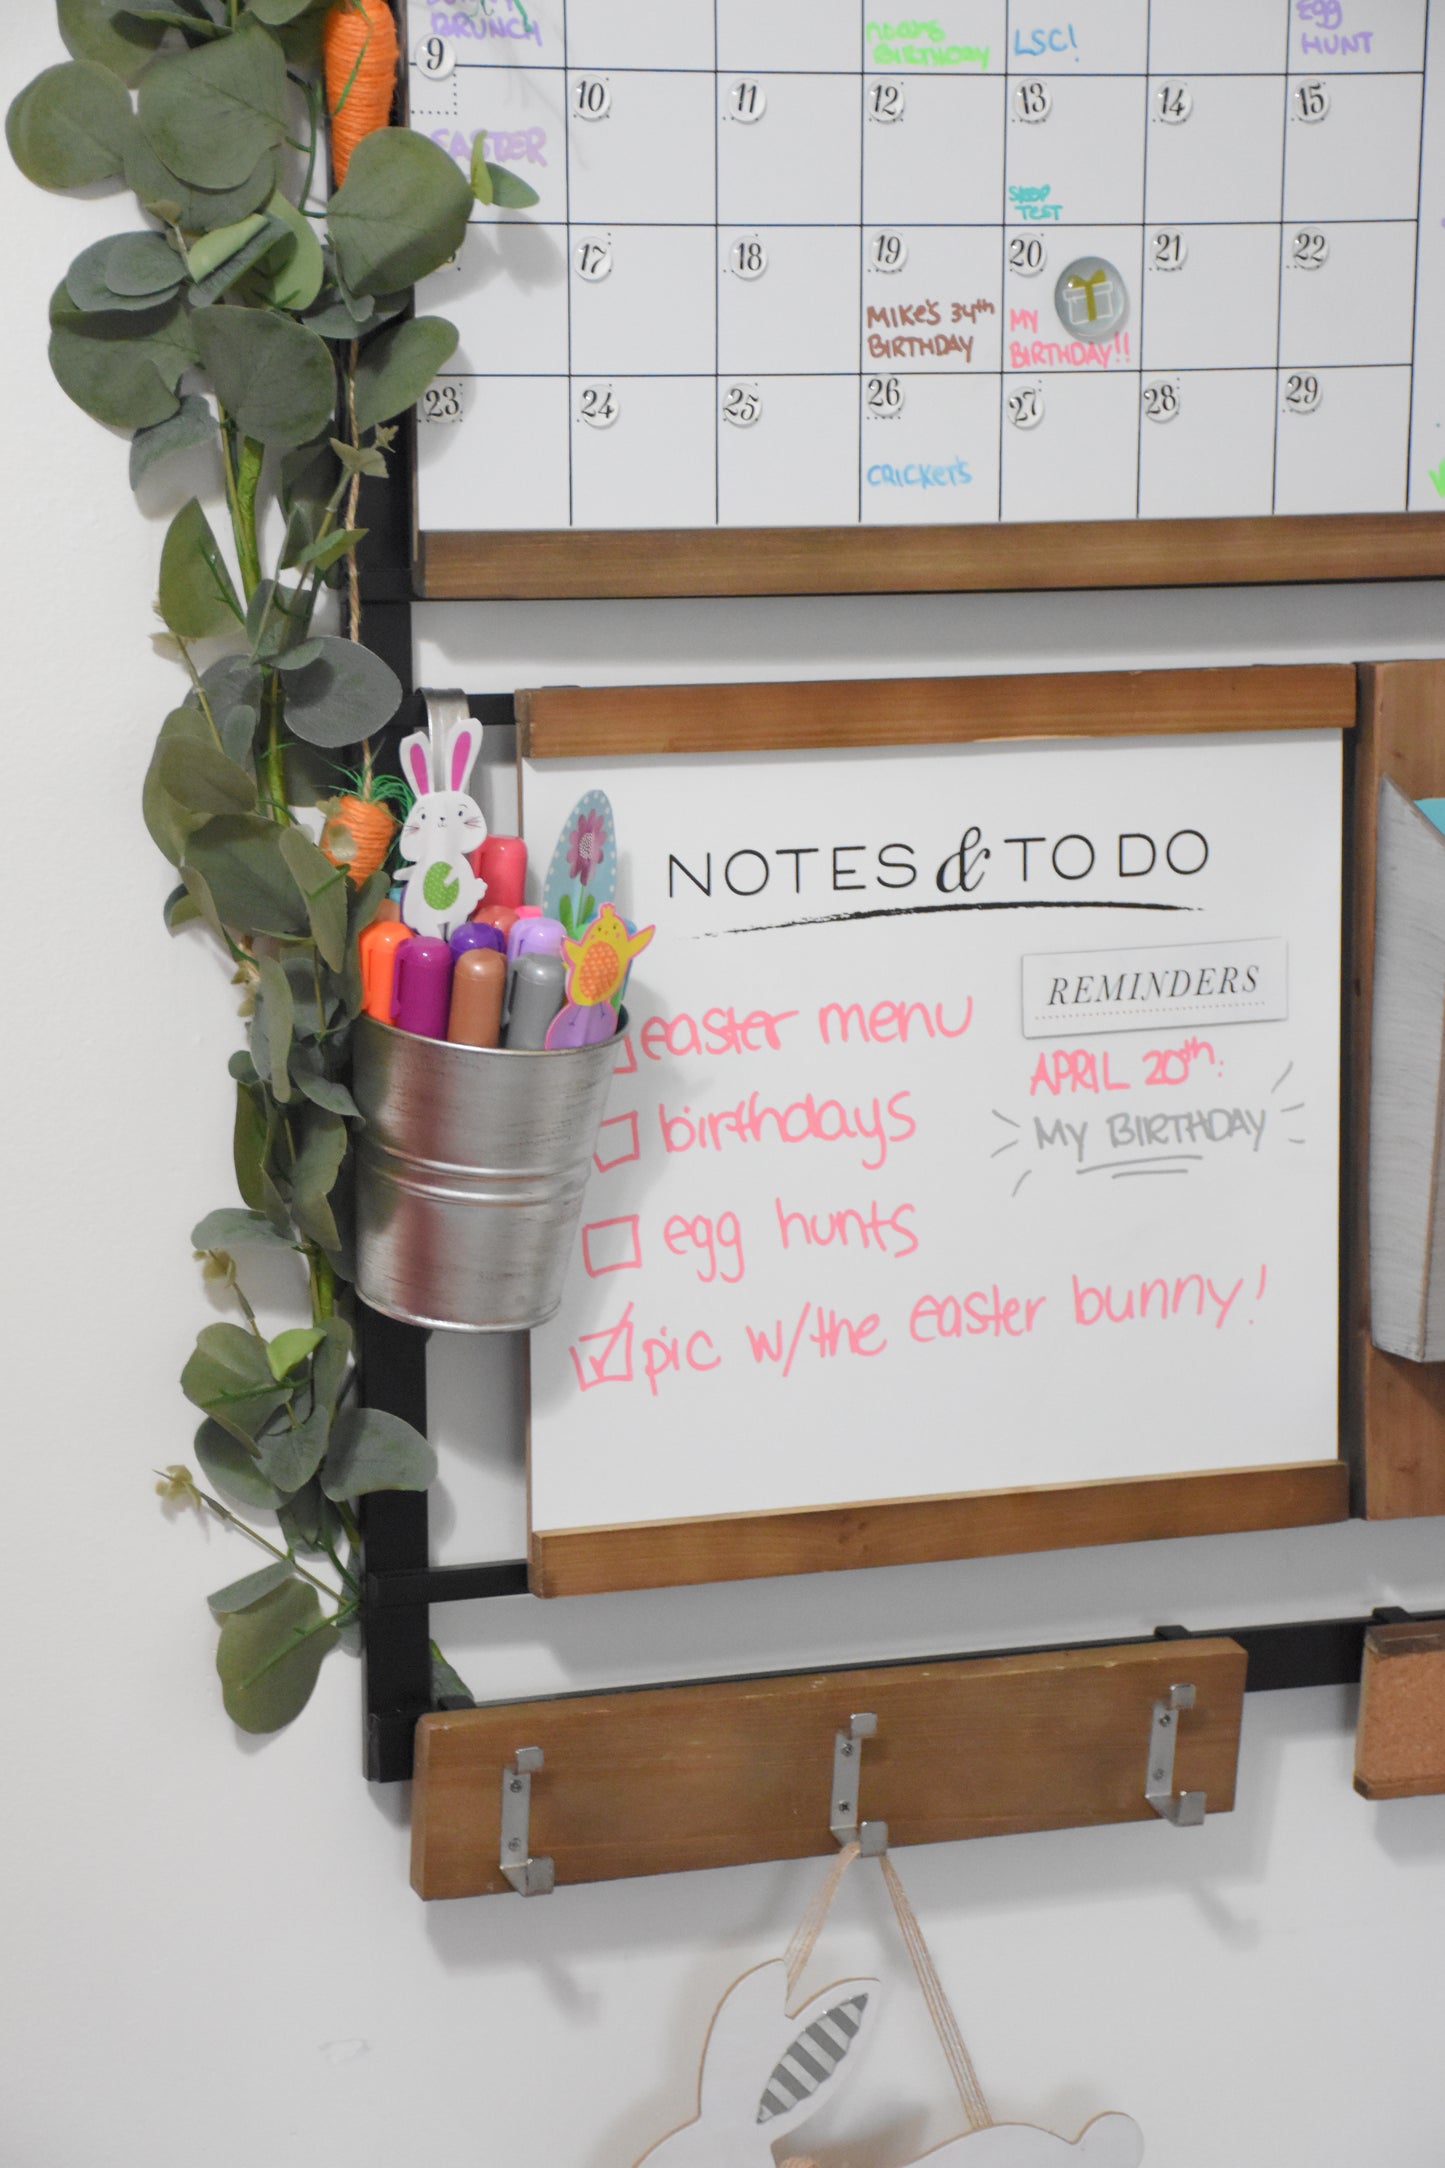 BRUNCH
BIRTHDAY
LSC!
EGG
HUNT
9
10
11
12
13
14
15
EASTER
TEST
17
18
19
20
21
22
MIKE'S 34th
BIRTHDAY
MY
BIRTHDAY!!
23
24
25
26
27
28
29
CRICKET'S
NOTES & TO DO
REMINDERS
APRIL 20th:
MY BIRTHDAY
easter menu
birthdays
egg hunts
pic w/the easter bunny!